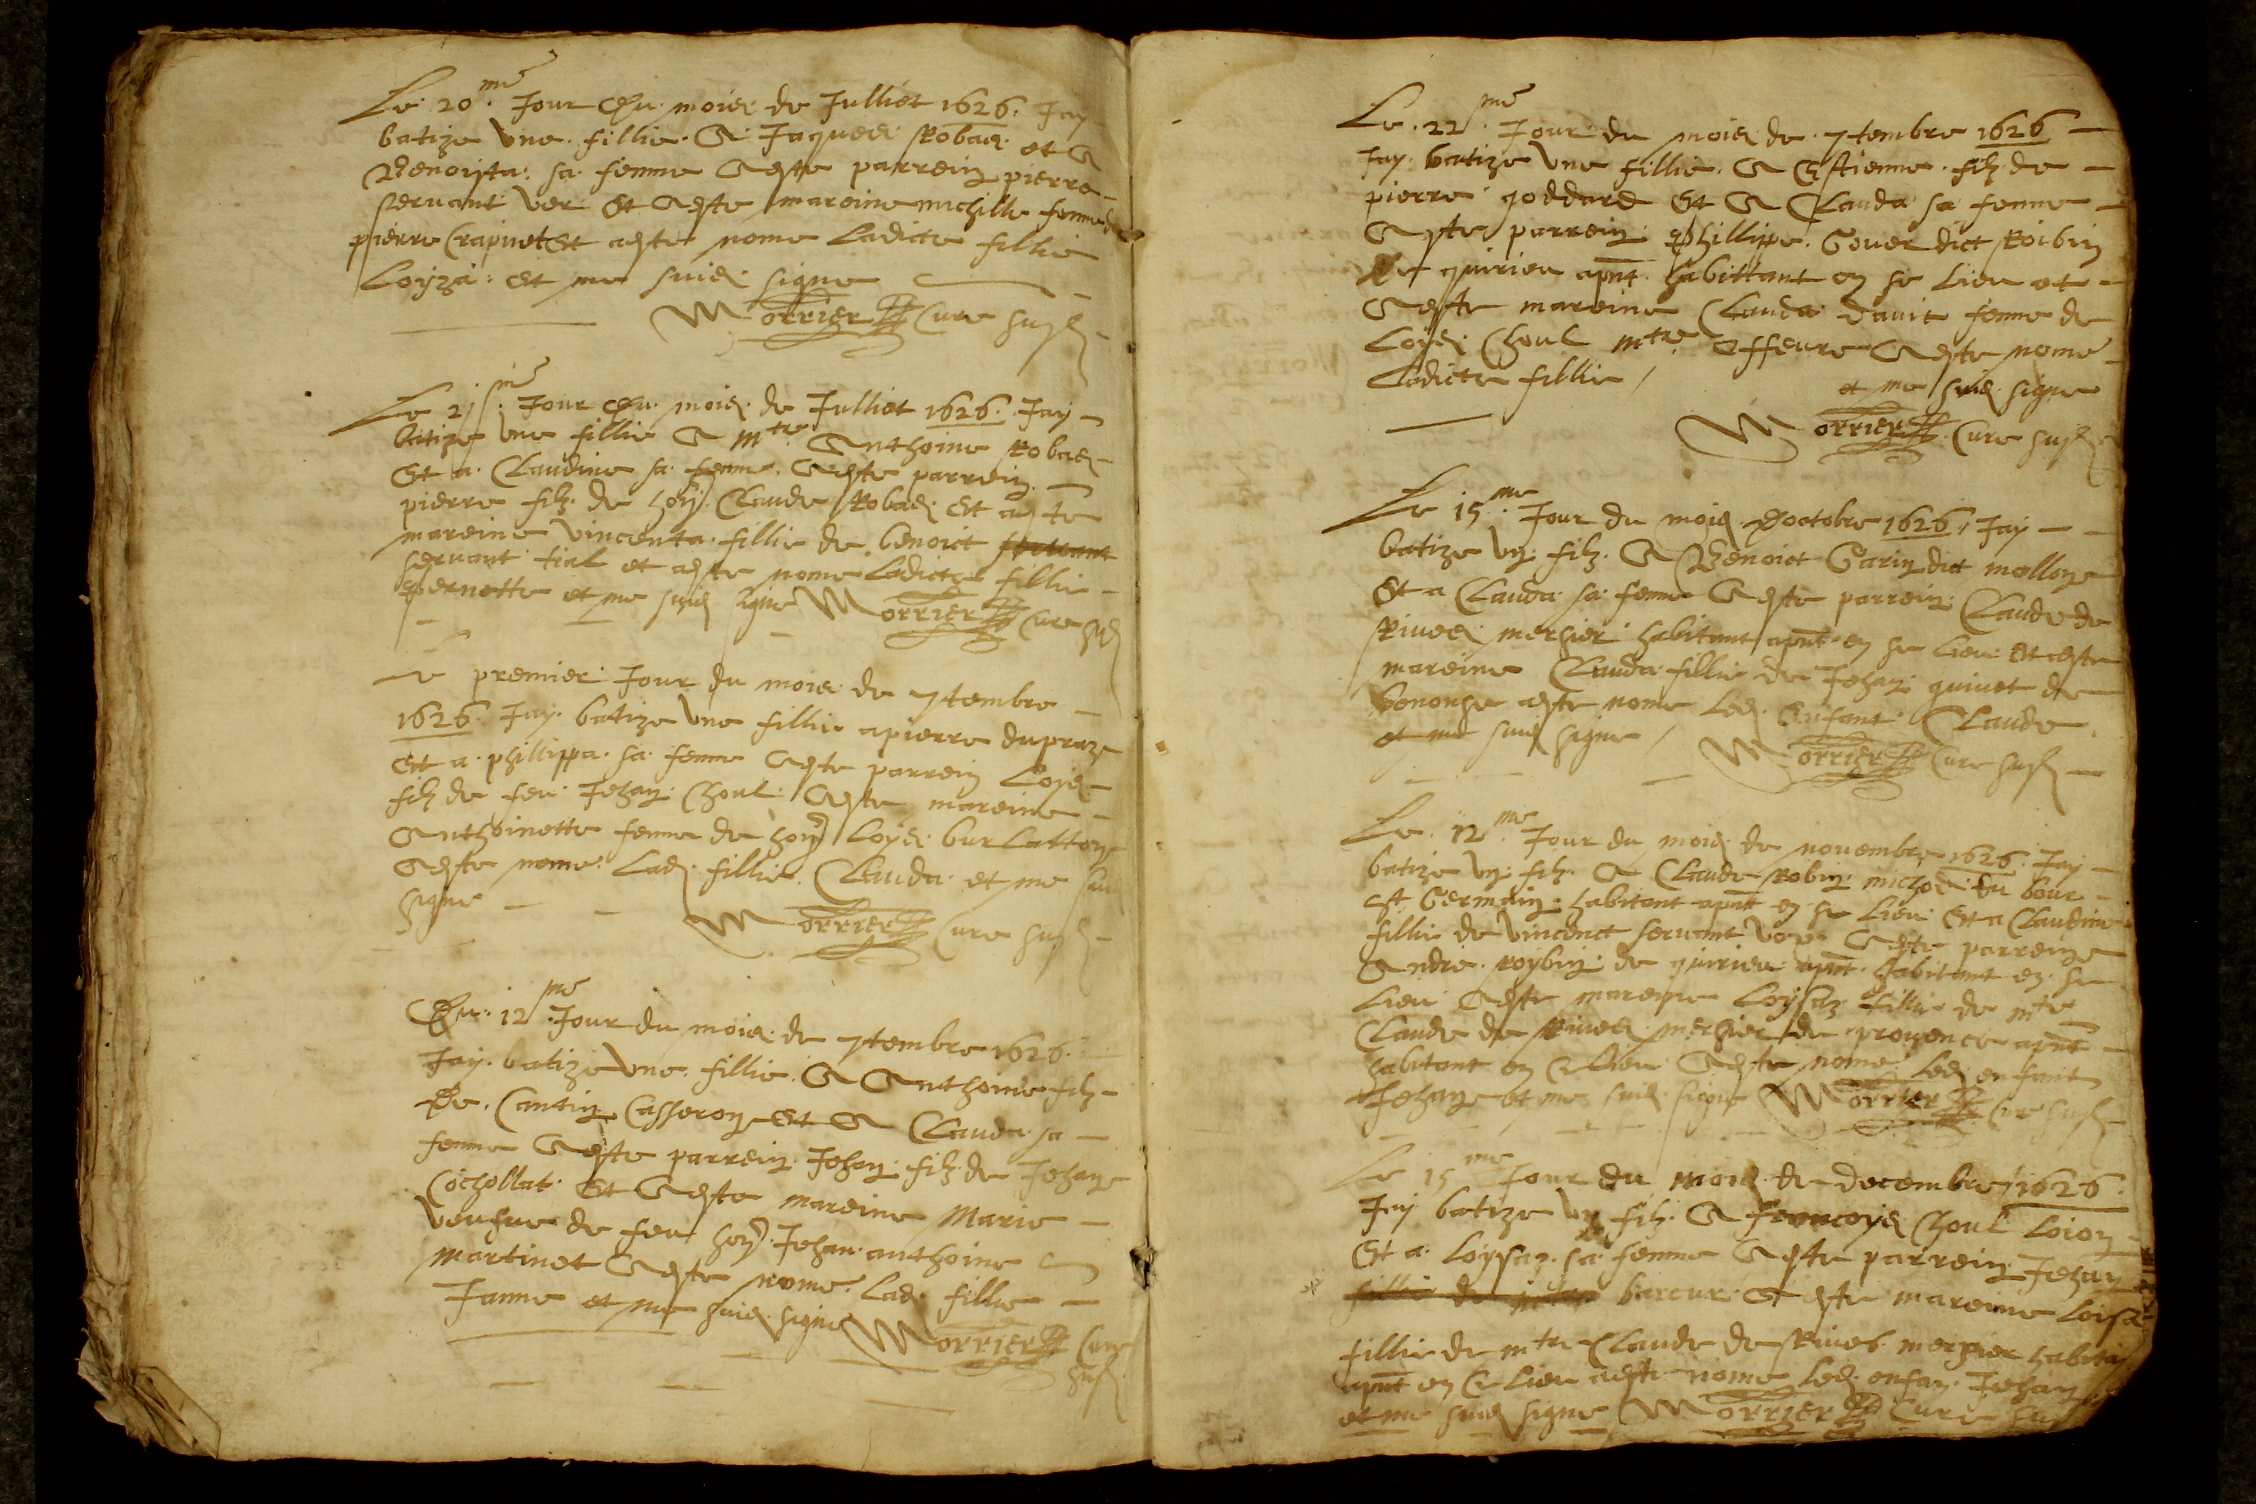 Le 20.me Jour du moies de Julliet 1626. Jay
batize une fillie A Jaques Robas et A
Benoista sa femme A este parrein pierre
servant ver Et A este mareine michille femme de
pierre Crapuet Et a este nome Ladicte fillie
Loyza Et me suies signe
Morrier Cure susd
Le 21.me Jour du moies de Julliet 1626. Jay
batize une fillie A mtre Anthoine Robas
Et a Claudine sa femme A este parrein
pierre filz de hon Claude Robas Et aeste
mareine vincenta fillie de benoict servant
servant tial et a este nome Ladicte fillie
pernette et me suies signe Morrier Cure susd
Le premier Jour du moies de 7tembre
1626. Jay batize une fillie a pierre dupraze
Et a phillippa sa femme A este parrein Loyes
filz de feu Jehan Choul A este mareine
Anthoinette femme de hon Loyes burlatton
A este nome Lad. fillie Clauda et me suis
signe
Morrier Cure susd
Du 12.me Jour du moies de 7tembre 1626.
Jay batize une fillie A Anthoine filz
De Cantin Casseron Et A Clauda sa
femme A este parrein Jehan filz de Jehan
Cochollat Et A este mareine Marie
veufve de feu hon Jehan anthoine
martinet A este nome Lad. fillie
Janne et me suies signe Morrier Cure
susd
Le 22.me Jour du moies de 7tembre 1626
Jay batize une fillie A Estienne filz de
pierre goddard Et A Clauda sa femme
A este parrein phillippe Gouer dict Roibin
De quirieu apnt habittant en se Lieu et
A este mareine Clauda davit femme de
Loyes Choul mtre offeure A este nome
Ladicte fillie /
et me suies signe
Morrier Cure susd
Le 15.me Jour du moies Doctobre 1626, Jay
batize un filz A Benoict Garin dict mollon
Et a Clauda sa femme A este parrein Claude de
Rives mersier habitant apnt en se Lieu Et a este
mareine Clauda fillie de Jehan quinet de
bononse a este nome Led. Enfant Claude
et me suies signe / Morrier Cure susd
Le 12.me Jour du moies de novembre 1626. Jay
batize un filz A Claude Robin michoz du bour
st Germain habitant apnt en se Lieu Et a Claudine
fillie de vincent servant ver A este parreine
Andre roybin de quirieu apnt habitant en se
Lieu A este mareine Loysaz fillie de mtre
Claude de Rives mersier de provence apnt
habitant en ce Lieu A este nome Led. enfant
Jehan et me suies signe Morrier Cure susd
Le 15me Jour du moies de decembre 1626.
Jay batize un filz A francoyes Choul Loion
Et a Loysaz sa femme A este parrein Jehan
fillie de mtre barcur Et este mareine Loisa
fillie de mtre Claude de Rives mersier habitant
apnt en ce Lieu a este nome Led. enfan Jehan
et me suies signe Morrier Cure susd